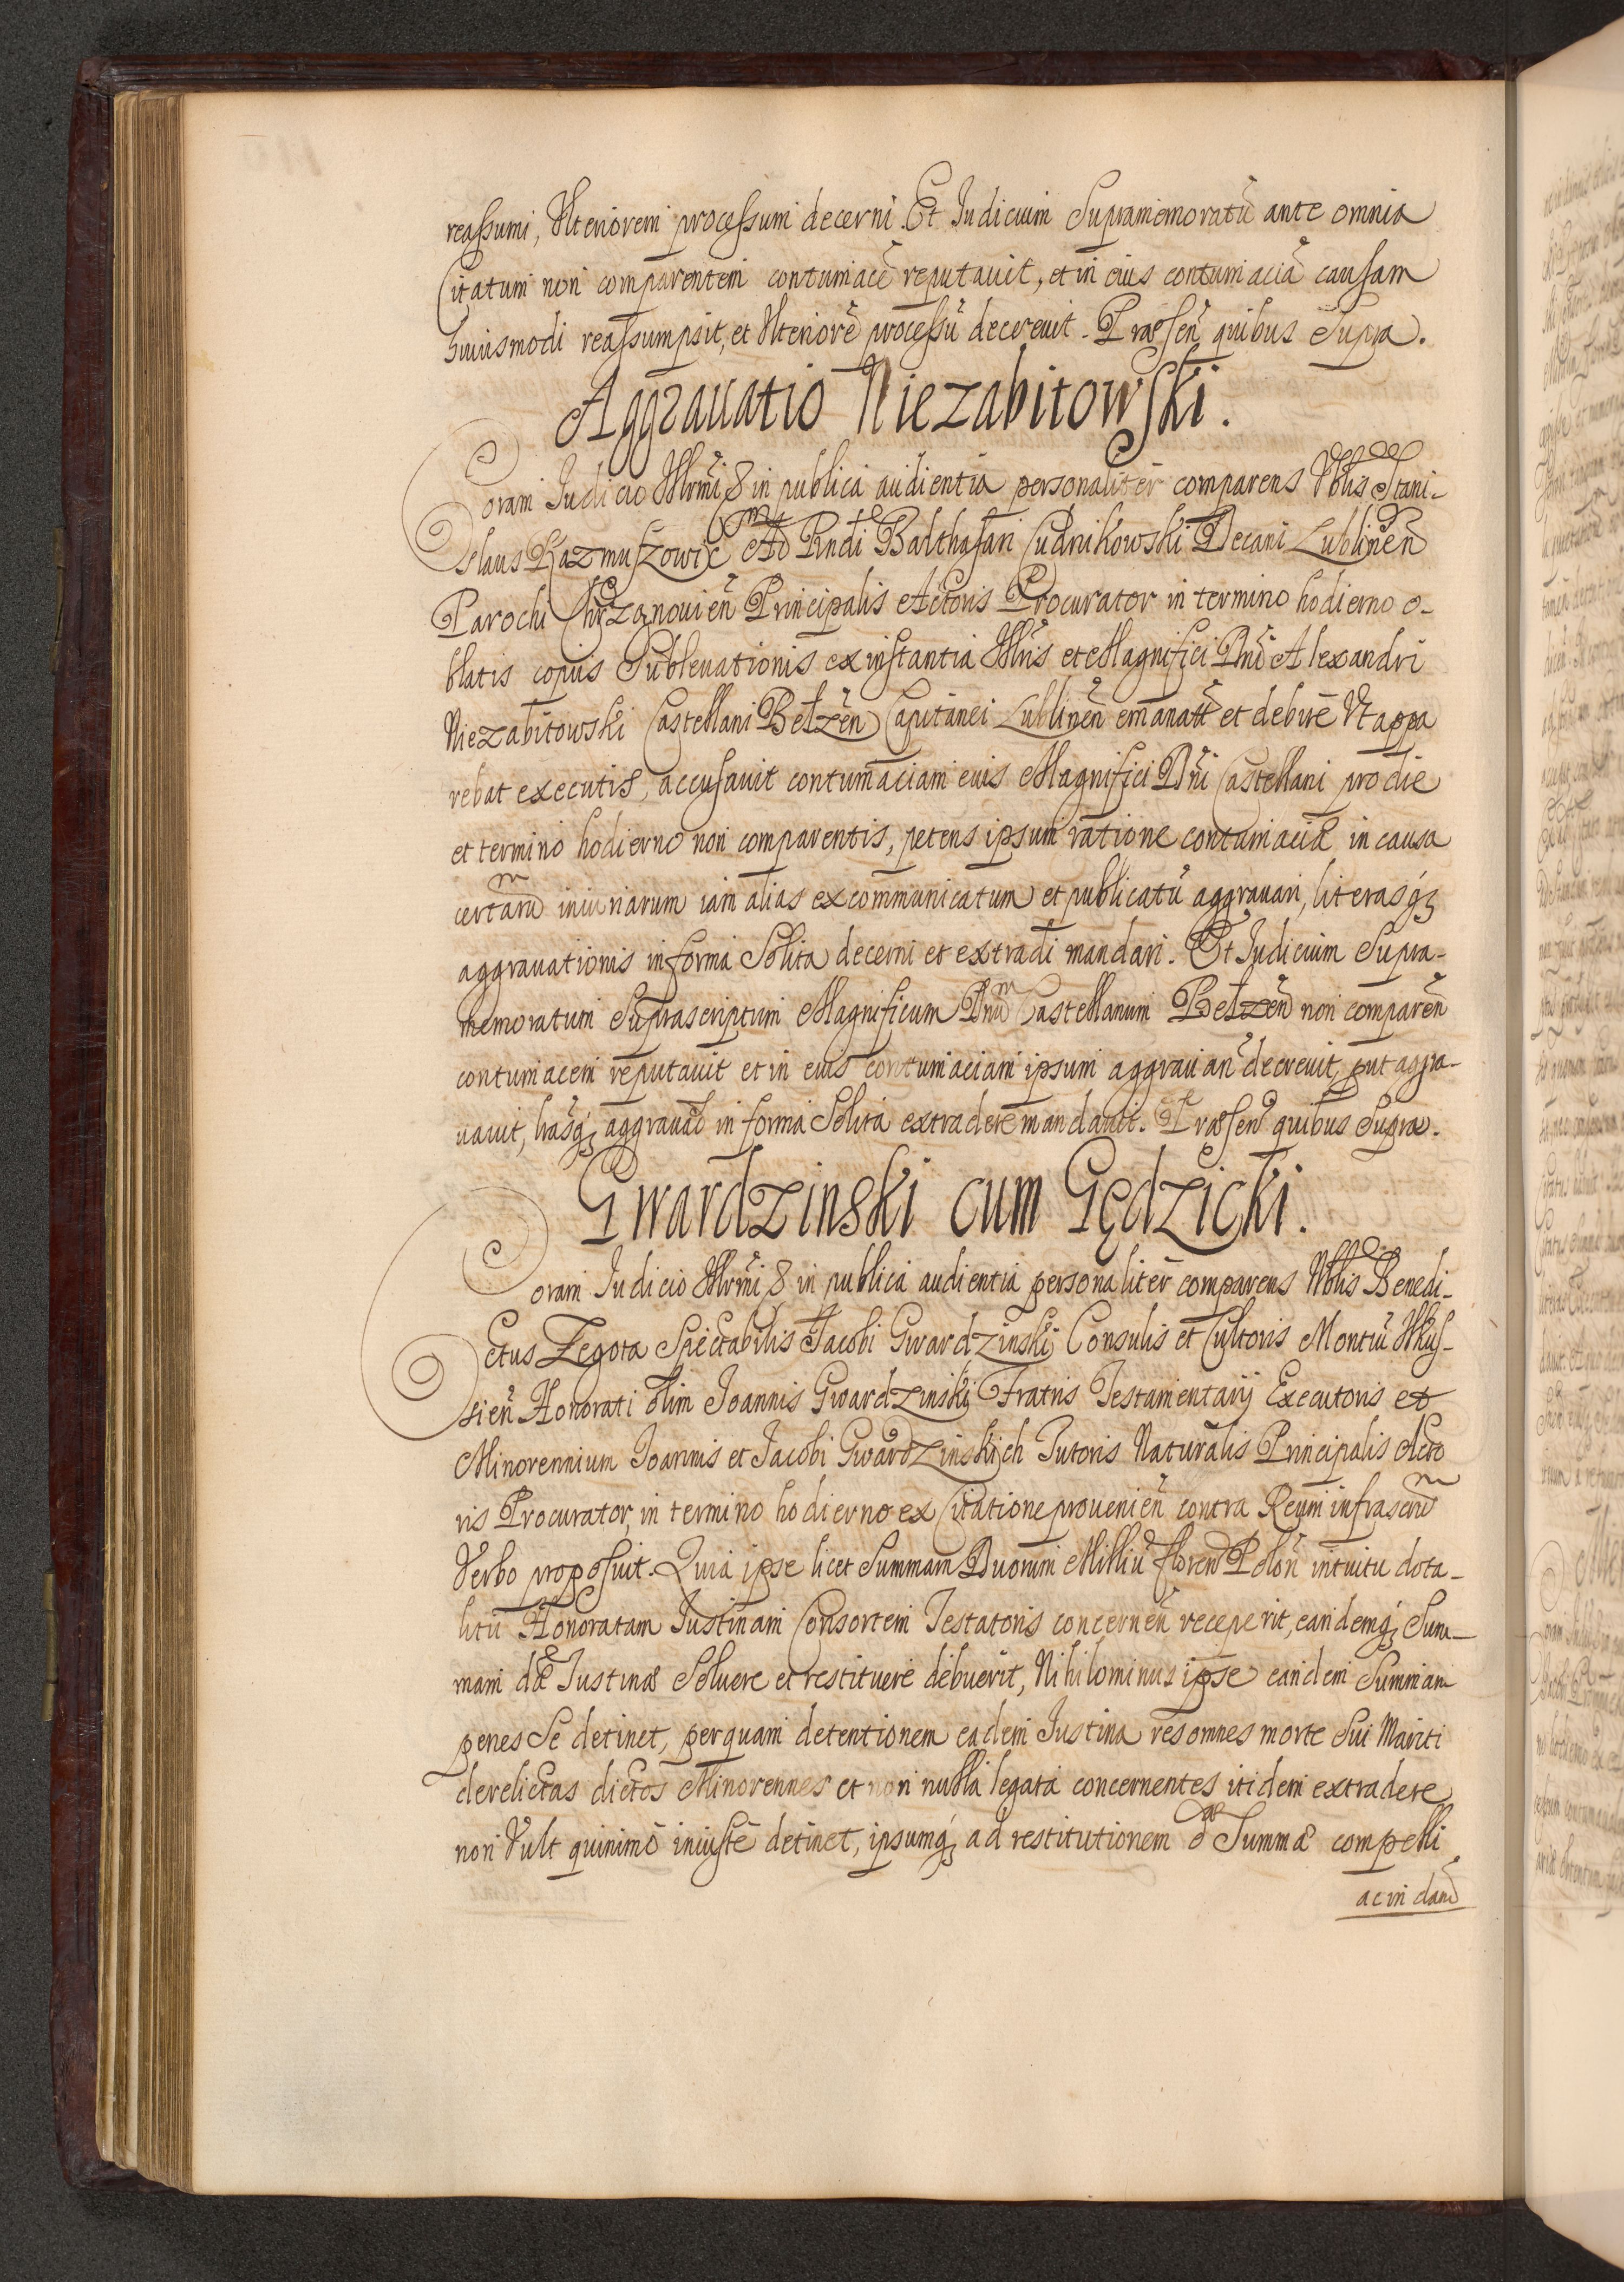 reassumi, Ulteriorem processum decerni. Et Iudicium Supramemoratū ante omnia
Citatum non comparentem contumacē reputauit, et in eius contumaciā causam
huiusmodi reassumpsit, et Ulteriorē processū decreuit. Præsen̄ quibus Supra.
Aggrauatio Niezabitowski.
Coram Iudicio Illrmi & in publica audientia personaliter comparens Nblis Stani-
slaus Kazmuszowic Ad Rndi Balthasari Cudnikowski Decani Lublinen̄
Parochi Chrząnouien̄ Principalis Actoris Procurator in termino hodierno o-
blatis copiis Subleuationis ex instantia Illris et Magnifici Dn̄i Alexandri
Niezabitowski Castellani Belzēn Capitanei Lublinēn emanatæ et debite Ut appa
rebat executis, accusauit contumaciam eius Magnifici Dn̄i Castellani pro die
et termino hodierno non comparentis, petens ipsum ratione contumaciæ in causa
certarū iniuriarum iam alias excommunicatum et publicatū aggrauari, literasq;
aggrauationis in forma Solita decerni et extradi mandari. Et Iudicium Supra-
memoratum Suprascriptum Magnificum Dnū Castellanum Belzēn non comparēn
contumacem reputauit et in eius contumaciam ipsum aggrauan̄ decreuit, put aggra-
uauit, lrasq; aggrauaō in forma Solita extradere mandauit. Præsen̄ quibus Supra.
Gwardzinski cum Gędzicki.
Coram Iudicio Illrmi & in publica audientia personaliter comparens Nblis Benedi-
ctus Zegota Spectabilis Iacobi Gwardzinskij Consulis et Cultoris Montiū Ilkus-
sien̄ Honorati olim Ioannis Gwardzinskij Fratris Testamentarij Executoris et
Minorennium Ioannis et Iacobi Gwardzinskich Tutoris Naturalis Principalis Acto
ris Procurator, in termino hodierno ex Citatione prouenien̄ contra Reum infrascrū
Verbo proposuit. Quia ipse licet Summam Duorum Milliū floren̄ Polon̄ intuitu dota-
litii Honoratam Iustinam Consortem Testatoris concernēn receperit, eandemq; Sum-
mam dæ Iustinæ Soluere et restituere debuerit, Nihilominus ipse eandem Summam
penes Se detinet, per quam detentionem eadem Iustina res omnes morte Sui Mariti
derelictas dictos Minorennes et non nulla legata concernentes itidem extradere
non Vult quinimo iniuste detinet, ipsumq; ad restitutionem dæ Summæ compelli
ac in dan̄